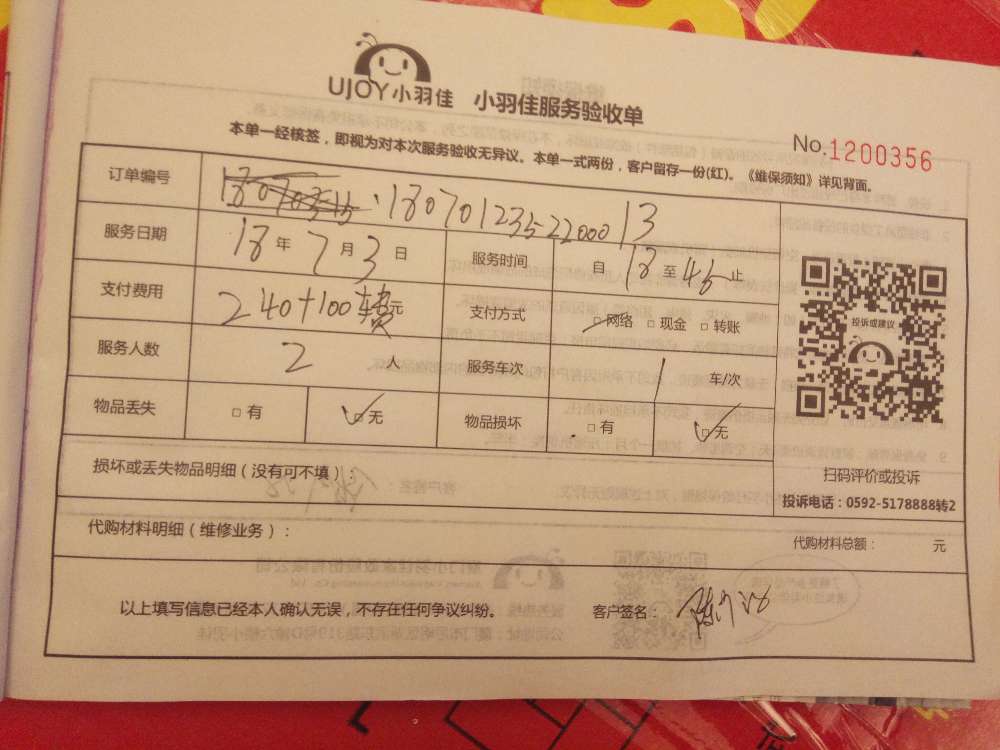 UJOY小羽佳 小羽佳服务验收单
No.1200356
本单一经核签，即视为对本次服务验收无异议。本单一式两份，客户留存一份(红)。《维保须知》详见背面。
订单编号 1807012352200013
服务日期 18年7月3日 服务时间 自18至45止
支付费用 240+100车费元 支付方式 □网络 □现金 □转账
服务人数 2人 服务车次 1车/次
物品丢失 □有 □无 物品损坏 □有 □无
投诉或建议
扫码评价或投诉
投诉电话：0592-5178888转2
损坏或丢失物品明细（没有可不填）：
代购材料明细（维修业务）： 代购材料总额： 元
以上填写信息已经本人确认无误，不存在任何争议纠纷。 客户签名：